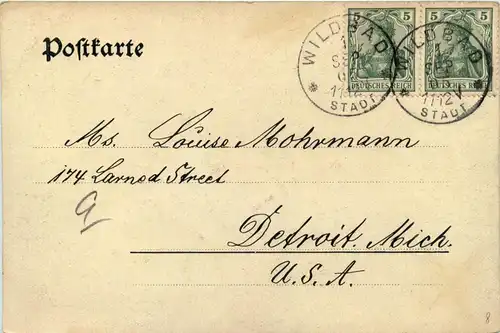 Postkarte
5 5
DEUTSCHES REICH DEUTSCHES REICH
WILDBAD
STADT
WILDBAD
1112V
STADT
Ms. Louise Mohrmann
174 Larned Street
a
Detroit. Mich.
U.S.A.
8